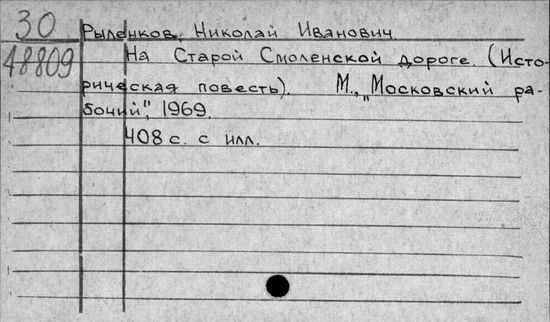 30 Рыленков, Николай Иванович.
48809 На Старой Смоленской дороге. (Исто-
рическая повесть). М., „Московский ра-
бочий", 1969.
408 с. с илл.